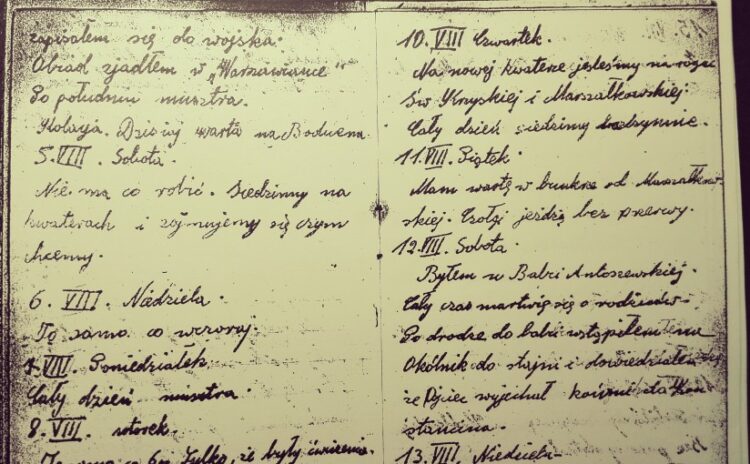 zapisałem się do wojska.
Obiad zjadłem w „Warszawiance"
Po południu musztra.
Kolacja. Dzisiaj warta na Boduena.
5.VIII. Sobota.
Nie ma co robić. Siedzimy na
kwaterach i zajmujemy się czym
chcemy.
6. VIII. Niedziela.
To samo co wczoraj.
7.VIII. Poniedziałek
Cały dzień musztra.
8. VIII. wtorek.
To samo co 6go tylko, że były ćwiczenia.
10.VIII Czwartek.
Na nowej kwaterze jesteśmy na rogu
Św Krzyskiej i Marszałkowskiej.
Cały dzień siedzimy bezczynnie.
11.VIII. Piątek.
Mam wartę w bunkrze od Marszałkow-
skiej. Czołgi jeżdżą bez przerwy.
12.VIII. Sobota.
Byłem u Babci Antoszewskiej.
Cały czas martwię się o rodziców.
Po drodze do babci wstąpiłem na
Okólnik do stajni i dowiedziałem się
że Ojciec wyjechał końmi do Kon
stancina.
13.VIII. Niedziela-